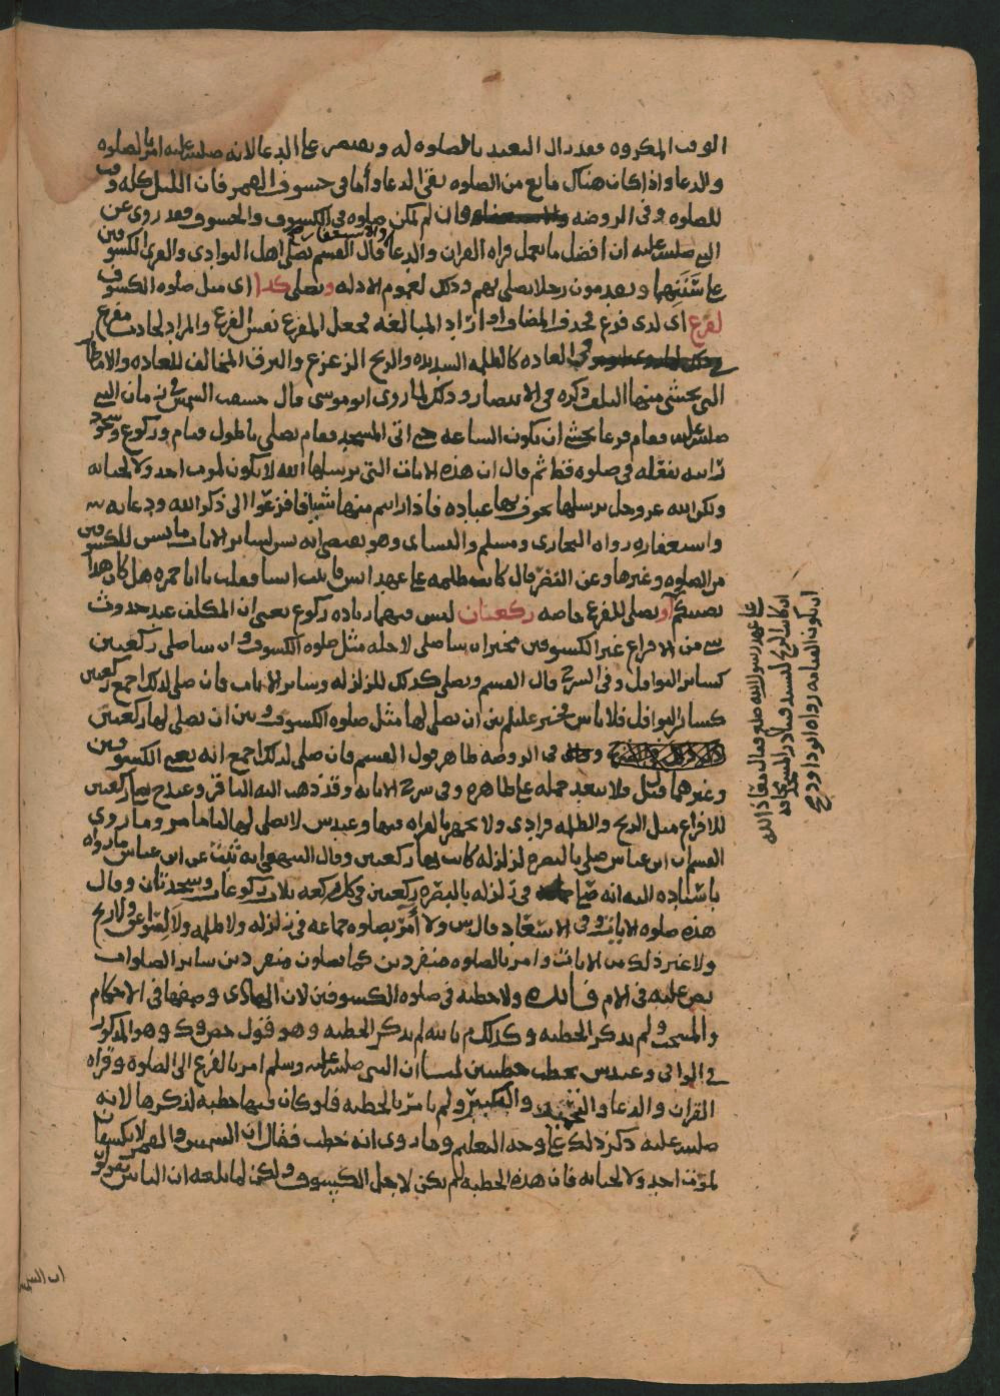 الوقت المكروه فقد زال التعبد بالصلوه له ويقتصر على الدعا لانه صلى الله عليه امر بالصلوه
والدعا واذا كان هناك مانع من الصلوه بقي الدعا وأما في خسوف القمر فان الليل كله وقت
للصلوه وفي الروضه فان لم تمكن صلوه في الكسوف والخسوف فقد روي عن
النبي صلى الله عليه ان افضل ما يعمل قراه القران والدعا والاستغفار قال القسم يصلي اهل البوادي والقرى الكسوفين
على سنتهما ويقدمون رجلا يصلي بهم وذلك لعموم الادله ويصلي كذا اي مثل صلوه الكسوف
لفزع اي لذي فزع فحذف المضاف او اراد المبالغه فجعل المفزع نفس الفزع والمراد لحادث مفزع
في العاده كالظلمه الشديده والريح الزعزع والبرق المخالف للعاده والامطار
التي يخشى منها التلف ذكره في الانتصار وذلك لما روى ابو موسى قال خسفت الشمس في زمان النبي
صلى الله عليه فقام فزعا يخشى ان تكون الساعه حتى اتى المسجد فقام يصلي باطول قيام وركوع وسجود
رايته يفعله في صلوه قط ثم قال ان هذه الايات التي يرسلها الله لا تكون لموت احد ولا لحياته
ولكن الله عز وجل يرسلها يخوف بها عباده فاذا رايتم منها شيا فافزعوا الى ذكر الله ودعايه
واستغفاره رواه البخاري ومسلم والنساي وهو يقتضي انه يسن لساير الايات ما يسن للكسوفين
من الصلوه وغيرها وعن النضر قال كانت ظلمه على عهد انس فاتيت انسا فقلت يا ابا حمزه هل كان هذا
يصيبكم او يصلي للفزع خاصه ركعتان ليس فيهما زياده ركوع يعني ان المكلف عند حدوث
شي من الافزاع غير الكسوفين مخير ان شا صلى لاجله مثل صلوه الكسوف وان شا صلى ركعتين
كساير النوافل وفي الشرح قال القسم ويصلي كذلك للزلزله وساير الايات فان صلى لذلك اجمع ركعتين
كساير النوافل فلا باس فخير عليلم بين ان يصلي لها مثل صلوه الكسوف وبين ان يصلي لها ركعتين
وفي الروضه ظاهر قول القسم فان صلى لذلك اجمع انه يعني الكسوفين
وغيرهما قيل ولا يبعد حمله على ظاهره وفي شرح الابانه وقد ذهب اليه الباقر وعند ح يصلي ركعتين
للافزاع مثل الريح والظلمه فرادى ولا يجهر بالقراه فيها وعند س لا يصلي لها لنا ما مر وما روى
القسم ان ابن عباس صلى بالبصره لزلزله كانت بها ركعتين وقال البيهقي انه ثبت عن ابن عباس ما رواه
باسناده اليه انه صلى في زلزله بالبصره ركعتين في كل ركعه ثلاث ركوعات وسجدتان وقال
هذه صلوه الايات وفي الاسعاد قال س ولا أمر بصلوه جماعه في زلزله ولا ظلمه ولا لصواعق ولا ريح
ولا غير ذلك من الايات وامر بالصلوه منفردين كما يصلون منفردين ساير الصلوات
نص عليه في الام فائده ولا خطبه في صلوه الكسوفين لان الهادي وصفها في الاحكام
والمنتخب ولم يذكر الخطبه وكذلك م بالله لم يذكر الخطبه وهو قول ح ص وك وهو المذكور
في الوافي وعند س يخطب خطبتين لنا ان النبي صلى الله عليه وسلم امر بالفزع الى الصلوه وقراه
القران والدعا والتحميد والتكبير ولم يامر بالخطبه فلو كان فيها خطبه لذكرها لانه
صلى الله عليه ذكر ذلك على وجه التعليم وما روي انه خطب فقال ان الشمس والقمر لا يكسفان
لموت احد ولا لحياته فان هذه الخطبه لم تكن لاجل الكسوف ولكن لما بلغه ان الناس تقولوا
على عهد رسول الله صلعم فقال معاذ الله
ان كانت الريح لتشتد فنبادر المسجد مخافه
ان تكون القيامه رواه ابو داود صح
ان الشمس